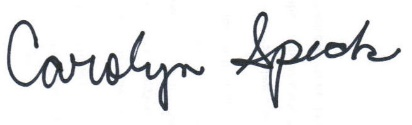 Carolyn Speck